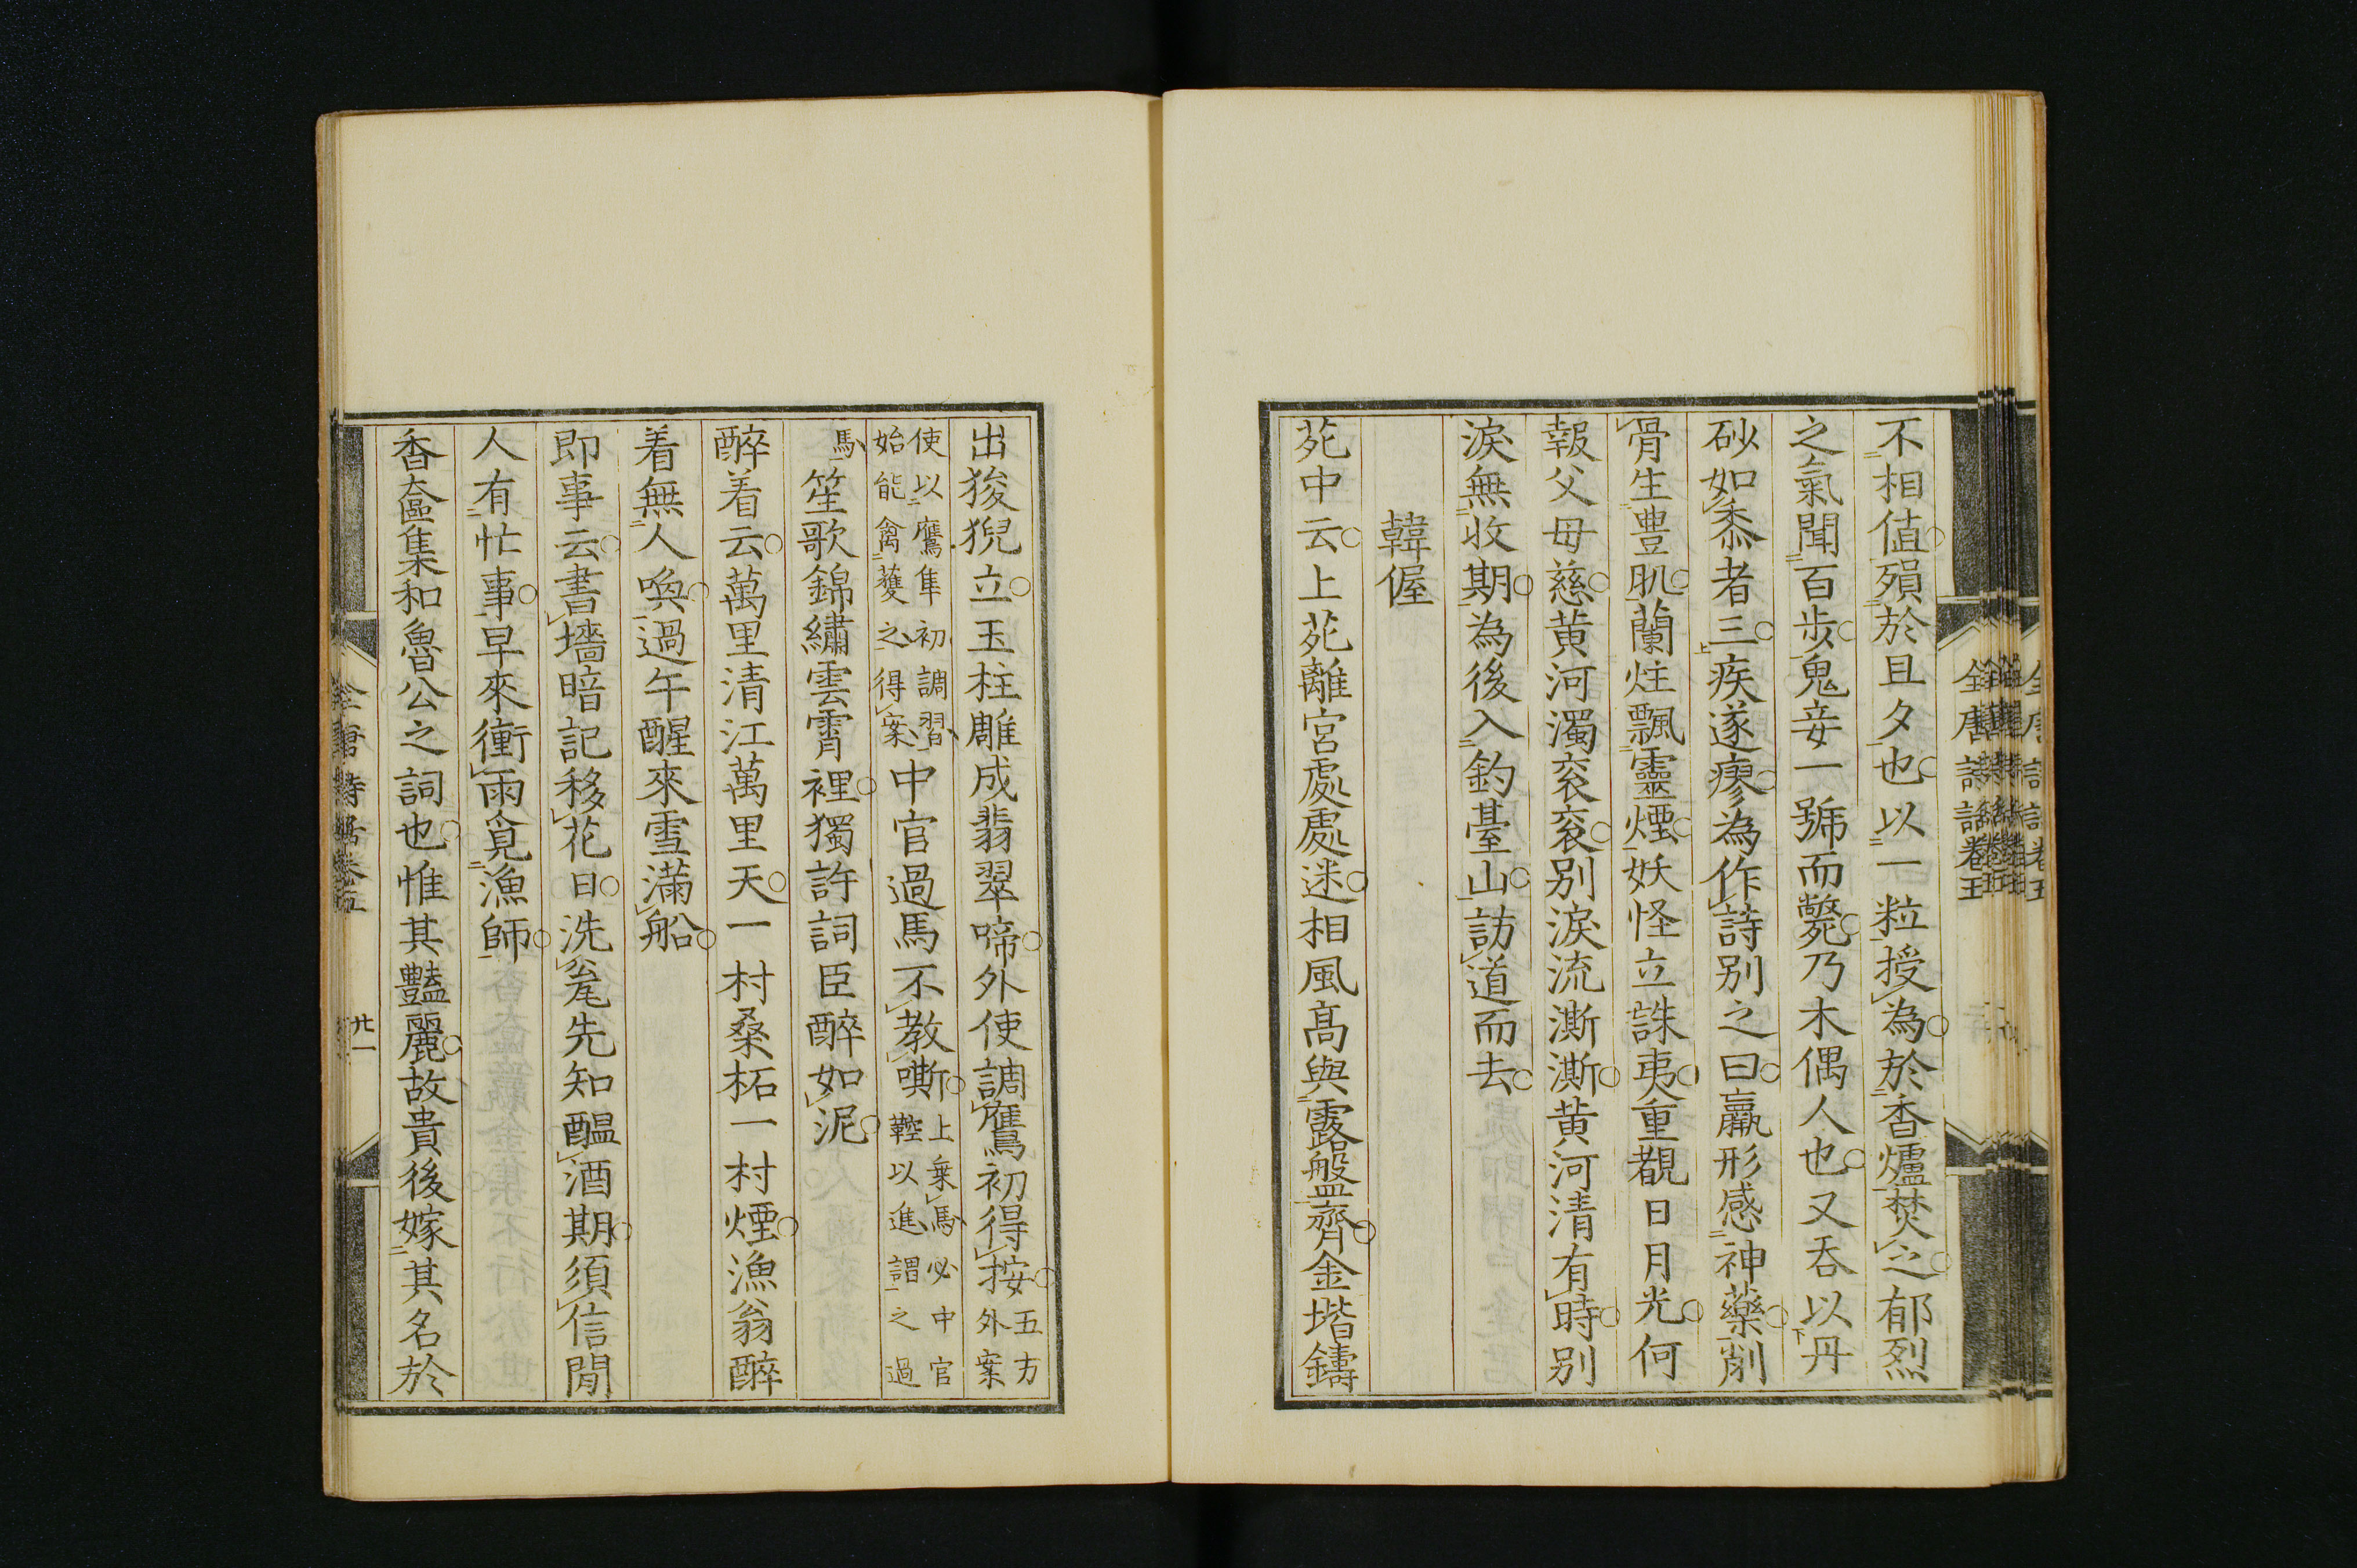 不相值殞於旦夕也以一粒授為於香爐焚之郁烈
之氣聞百步鬼妾一號而斃乃木偶人也又吞以丹
砂如黍者三疾遂瘳為作詩別之曰羸形感神藥削
骨生豊肌蘭炷飄靈煙妖怪立誅夷重覩日月光何
報父母慈黄河濁衮衮別淚流澌澌黄河清有時別
淚無收期為後入釣臺山訪道而去
韓偓
苑中云上苑離宮處處迷相風髙與露盤齊金堦鑄
出狻猊立玉柱雕成翡翠啼外使調鷹初得按五方外案
使以鷹隼初調習始能禽蒦之得案中官過馬不教嘶上乗馬必中官鞚以進謂之過
馬笙歌錦繡雲霄裡獨許詞臣醉如泥
醉着云萬里清江萬里天一村桑柘一村煙漁翁醉
着無人喚過午醒來雪滿船
即事云書墻暗記移花日洗瓮先知醖酒期須信閒
人有忙事早來衝雨覓漁師
香奩集和魯公之詞也惟其豔麗故貴後嫁其名於
全唐詩話卷五
全唐詩話卷五 廿一